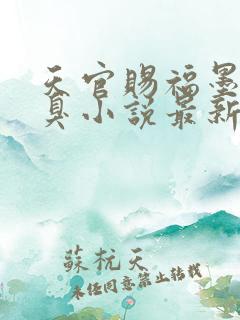 天官赐福墨
真小说最新
蘇杬天
未经同意禁止转载